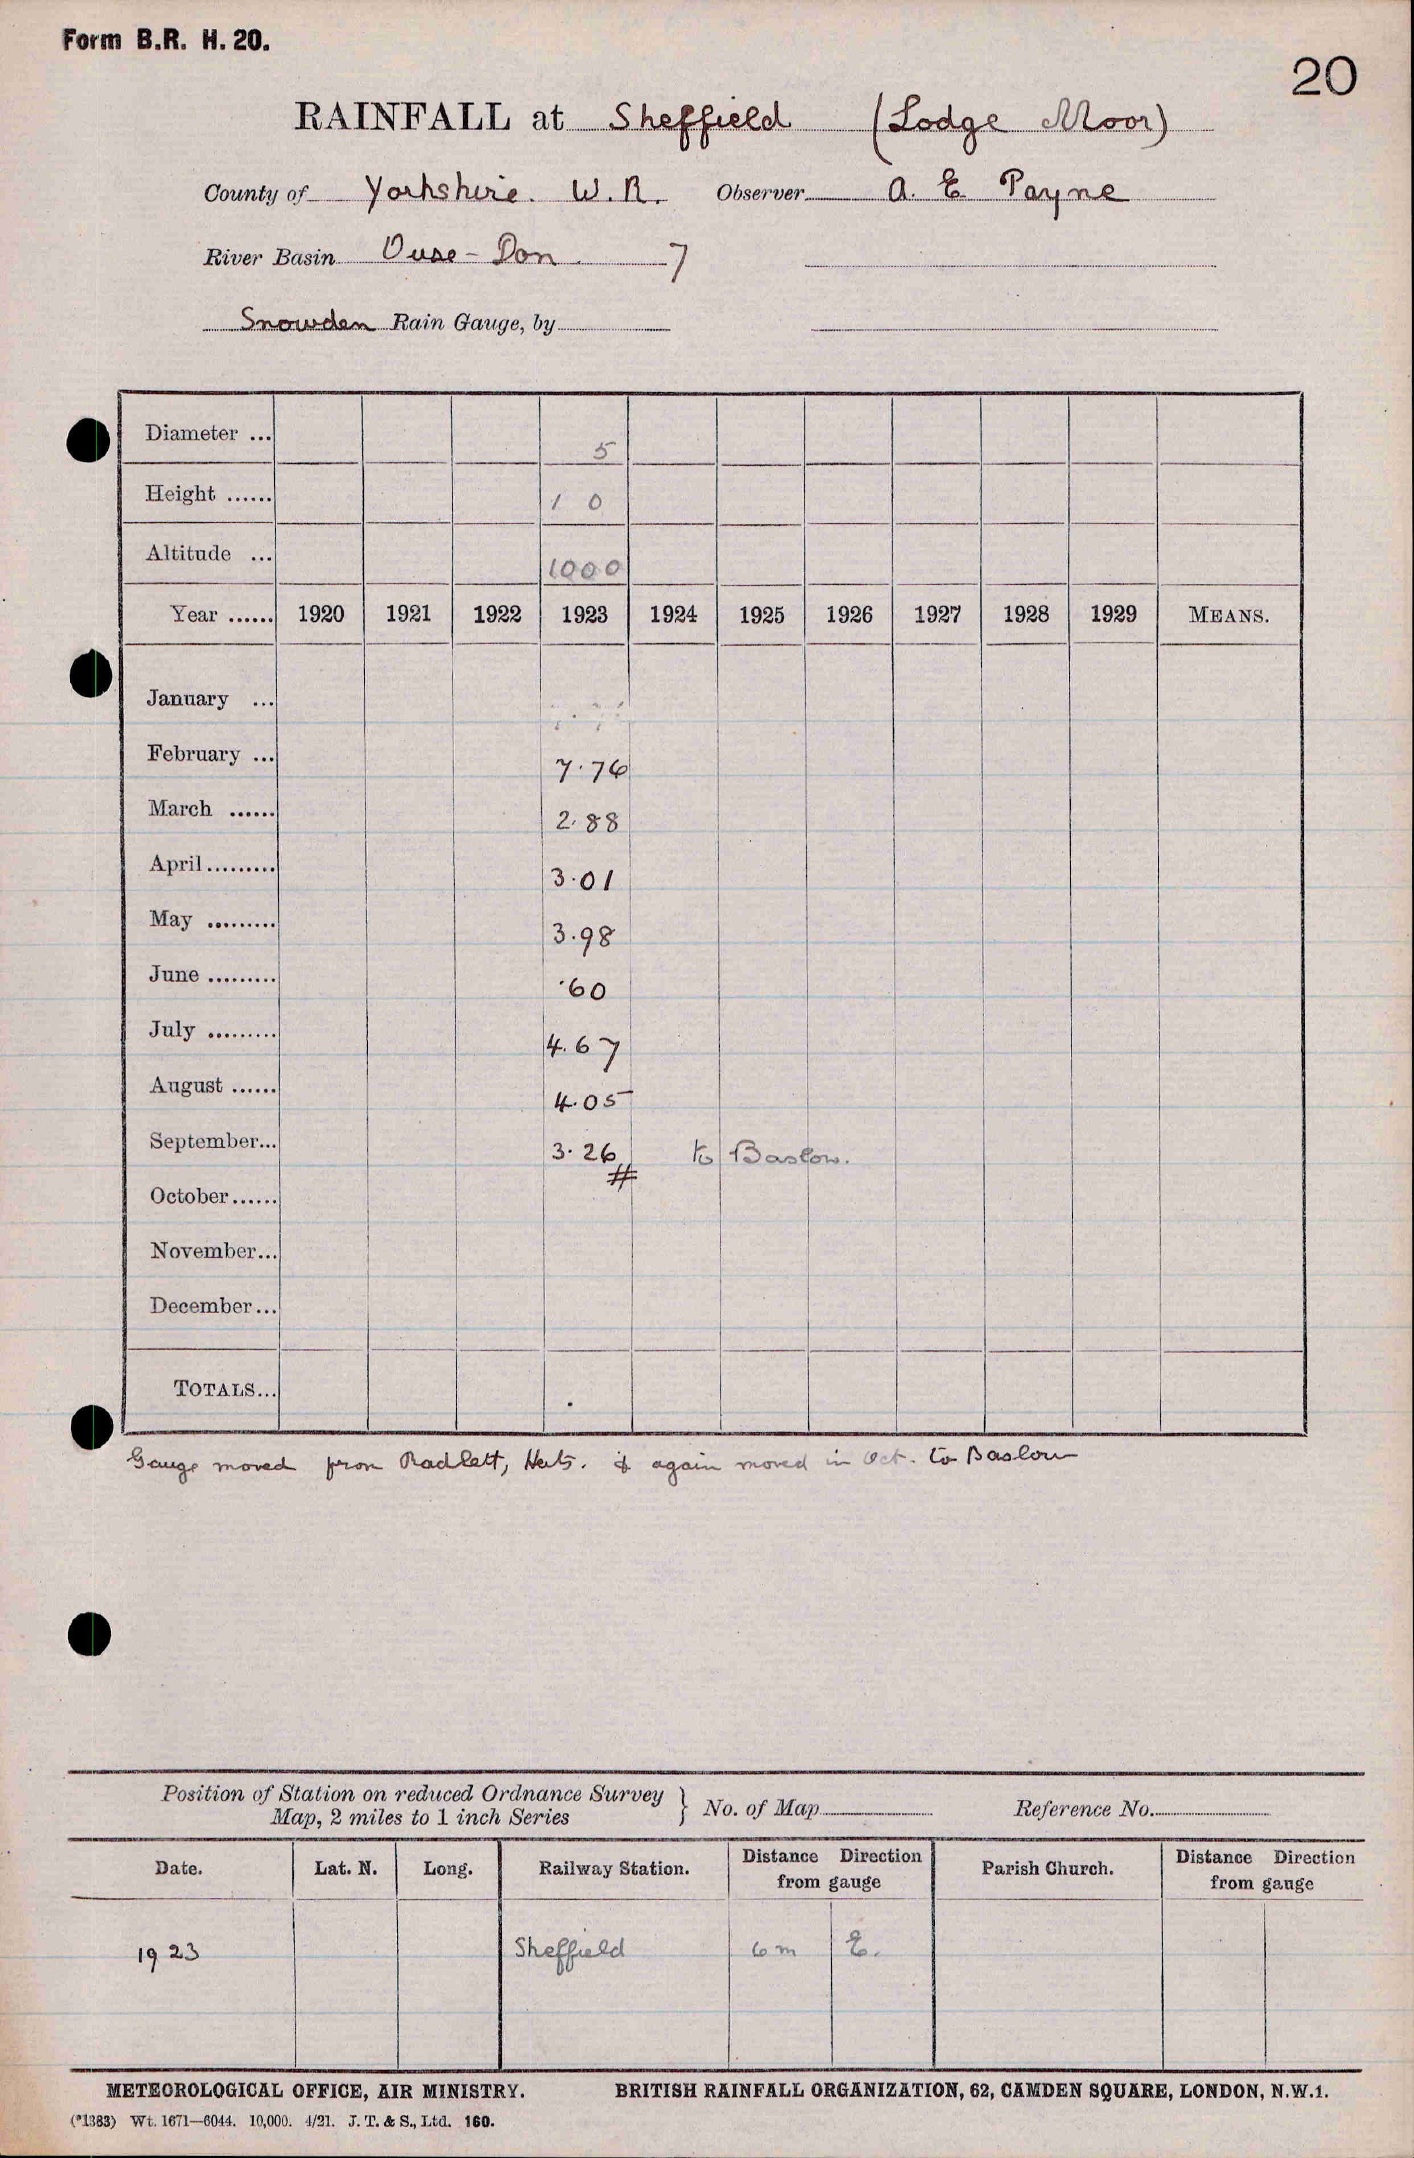 Form B.R. H. 20.
20
RAINFALL at Sheffield (Lodge Moor)
County of Yorkshire. W.R. Observer A. E Payne
River Basin Ouse - Don 7
Snowden Rain Gauge, by
Diameter ... 5
Height ...... 1 0
Altitude ... 1000
Year ...... 1920 1921 1922 1923 1924 1925 1926 1927 1928 1929 MEANS.
January ...
February ... 7.76
March ...... 2.88
April ......... 3.01
May ......... 3.98
June ......... .60
July ......... 4.67
August ...... 4.05
September... 3.26 to Baslow.
#
October......
November...
December...
TOTALS...
Gauge moved from Radlett, Herts. & again moved in Oct. to Baslow
Position of Station on reduced Ordnance Survey
Map, 2 miles to 1 inch Series } No. of Map Reference No.
Date. Lat. N. Long. Railway Station. Distance Direction from gauge Parish Church. Distance Direction from gauge
1923 Sheffield 6 m E.
METEOROLOGICAL OFFICE, AIR MINISTRY. BRITISH RAINFALL ORGANIZATION, 62, CAMDEN SQUARE, LONDON, N.W.1.
(*1383) Wt. 1671—6044. 10,000. 4/21. J. T. & S., Ltd. 160.